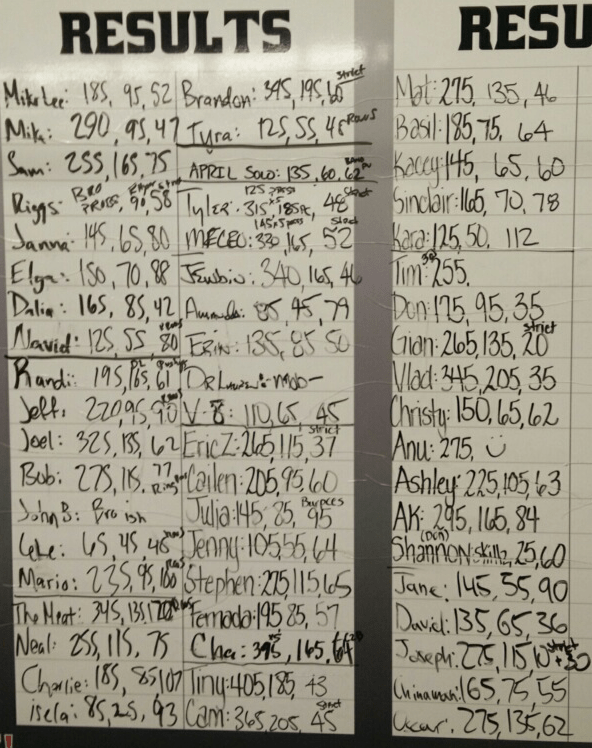 RESULTS
Mike Lee: 185, 95, 52
Mik: 290, 95, 47
Sam: 255, 165, 75
Riggs: Bro 90, 58
Janna: 145, 65, 80
Elya: 150, 70, 88
Dalia: 165, 85, 42
Navid: 125, 55, 80
Randi: 195, 165, 61
Jeff: 220, 95, 90
Joel: 325, 135, 62
Bob: 275, 115, 77
John B: Bro ish
65, 45, 48
Mario: 235, 95, 100
The Meat: 345, 135,
Neal: 255, 115, 75
Charlie: 185, 85, 107
isela: 85, 25, 93
Brandon: 345, 195, 60 strict
Tyra: 125, 55, 45 Rows
APRIL SOLO: 135, 60, 62
Tyler: 315 x5 185, 48 strict
MECEO: 330, 165, 52 strict
340, 165, 46
85, 45, 79
ERIN: 135, 85, 50
V-8: 110, 65, 45
Eric Z: 265, 115, 37 strict
Cailen: 205, 95, 60
Julia: 145, 85, 95 Burpees
Jenny: 105, 55, 64
Stephen: 275, 115, 65
Fernada: 195, 85, 57
Che: 395, 165, 64
Tiny: 405, 185, 43
Cam: 365, 205, 45 strict
RESU
Mat: 275, 135, 46
Basil: 185, 75, 64
Kacey: 145, 65, 60
Sinclair: 165, 70, 78
Kara: 125, 50, 112
Tim: 255,
Don: 175, 95, 35
Gian: 265, 135, 20 strict
Vlad: 345, 205, 35
Christy: 150, 65, 62
Anu: 275,
Ashley: 225, 105, 63
AK: 295, 165, 84
Shannon: skillz, 25, 60
Jane: 145, 55, 90
David: 135, 65, 36
Joseph: 275, 115, 10 strict + 30
Chinaman: 165, 75, 55
Oscar: 275, 135, 62